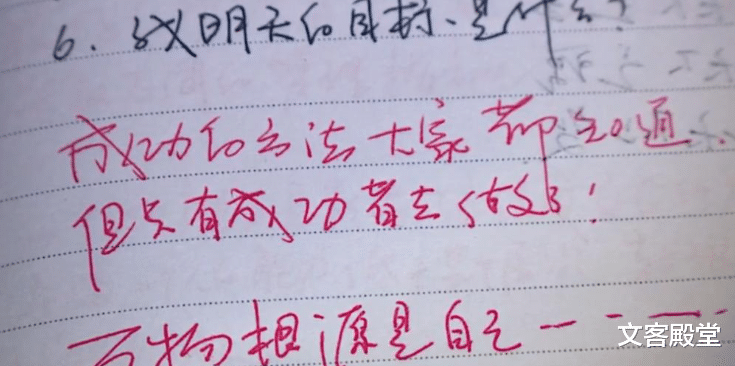 6.我明天的目标是什么?
成功的方法大家都知道.
但只有成功者去做了!
万物根源是自己一
文客殿堂